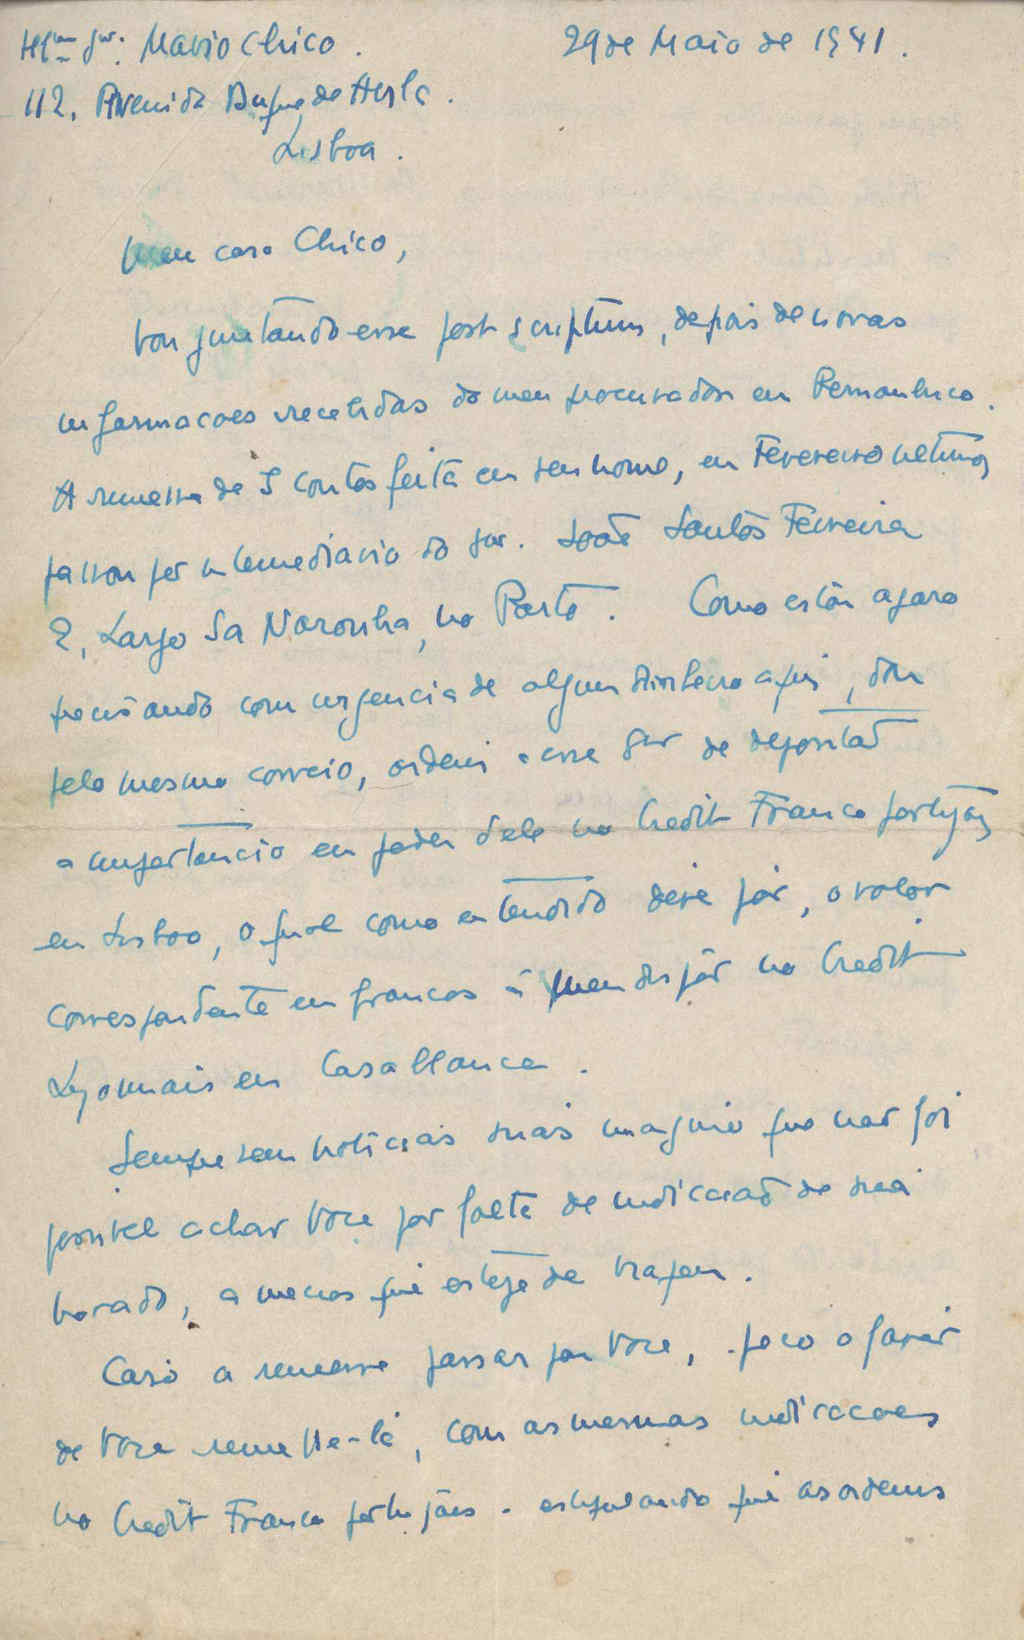 Illmo Snr. Mario Chico.
29 de Maio de 1941.
112, Avenida Duque de
Lisboa.
Meu caro Chico,
Vou juntando esse post scriptum, depois de novas
informacoes recebidas do meu procurador em Pernambuco.
A remessa de 5 contos feita em seu nome, em Fevereiro ultimo,
passou por intermediario do snr. Santos Ferreira
2, Largo Sa Noronha, no Porto. Como estou agora
precisando com urgencia de algum dinheiro aqui, dou
pelo mesmo correio, ordem a esse Snr de depositar
a importancia em poder dele no Credit Franco portugais
em Lisboa, o qual como entendido deve pôr, o valor
correspondente em francos á meu dispôr no Credit
Lyonnais en Casablanca.
Sempre sem noticias suas imagino que nao foi
possivel achar Voce por falta de indiccacao de sua
morado, a menos que esteja de viajem.
Caso a remesse passar por Voce, peco o favor
de Voce remette-la, com as mesmas indicacoes
no Credit Franco portugais - estipulando que as ordems